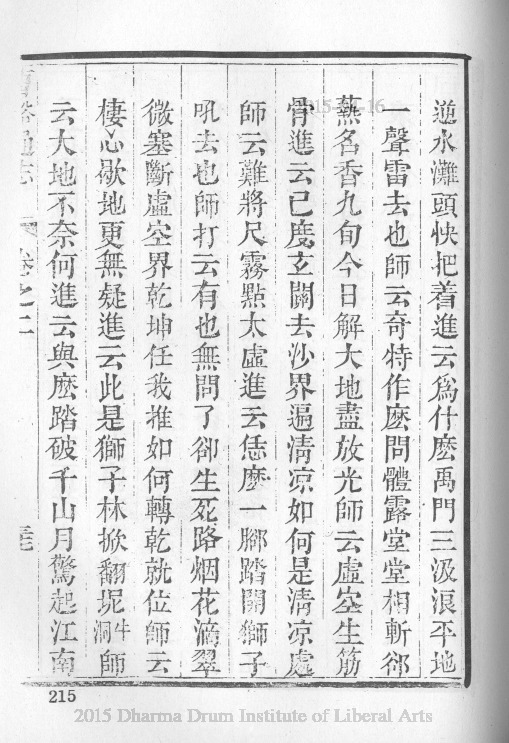 逆水灘頭快把着進云爲什麽禹門三汲浪平地
一聲雷去也師云奇特作麽問體露堂堂相斬郤
爇名香九旬今日解大地盡放光師云虛空生筋
骨進云已度玄關去沙界遍清凉如何是清凉處
師云難將尺霧點太虛進云恁麽一脚踏開獅子
吼去也師打云有也無問了郤生死路烟花滴翠
微塞斷虛空界乾坤任我推如何轉乾就位師云
棲心歇地更無疑進云此是獅子林掀翻坭牛洞師
云大地不奈何進云與麽踏破千山月驚起江南
卷之二
215
2015 Dharma Drum Institute of Liberal Arts